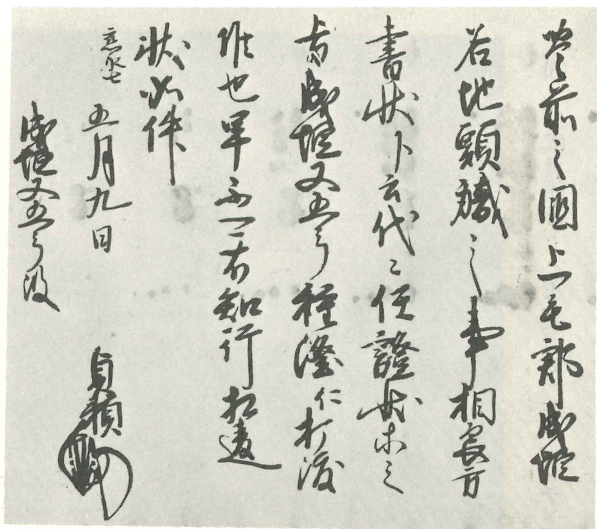 豊前之國上毛郡成恒
名地頭職之事相良万
書状下云代々任證状等之
旨成恒又五郎種隆仁打渡
所也早不可有知行相違
状如件
應永七
五月九日
貞頼
成恒又五郎殿